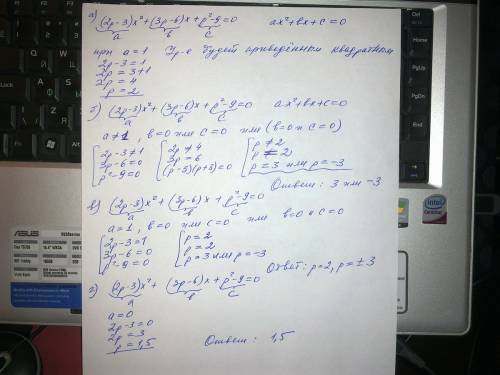 а) (2p-3)x²+(3p-6)x+p²-9=0 ax²+bx+c=0
a b c
при a=1 Ур-е будет приведённым квадратным
2p-3=1
2p=3+1
2p=4
p=2
б) (2p-3)x²+(3p-6)x+p²-9=0 ax²+bx+c=0
a b c
a≠1, b=0 или c=0 или (b=0 и c=0)
2p-3≠1 2p≠4 p≠2
3p-6=0 3p=6 p=2
p²-9=0 (p-3)(p+3)=0 p=3 или p=-3
Ответ: 3 или -3
в) (2p-3)x²+(3p-6)x+p²-9=0
a b c
a=1, b=0 или c=0 или b=0 и c=0
2p-3=1 p=2
3p-6=0 p=2
p²-9=0 p=3 или p=-3
Ответ: p=2, p=±3
г) (2p-3)x²+(3p-6)x+p²-9=0
a b c
a=0
2p-3=0
2p=3
p=1,5 Ответ: 1,5
ASUS